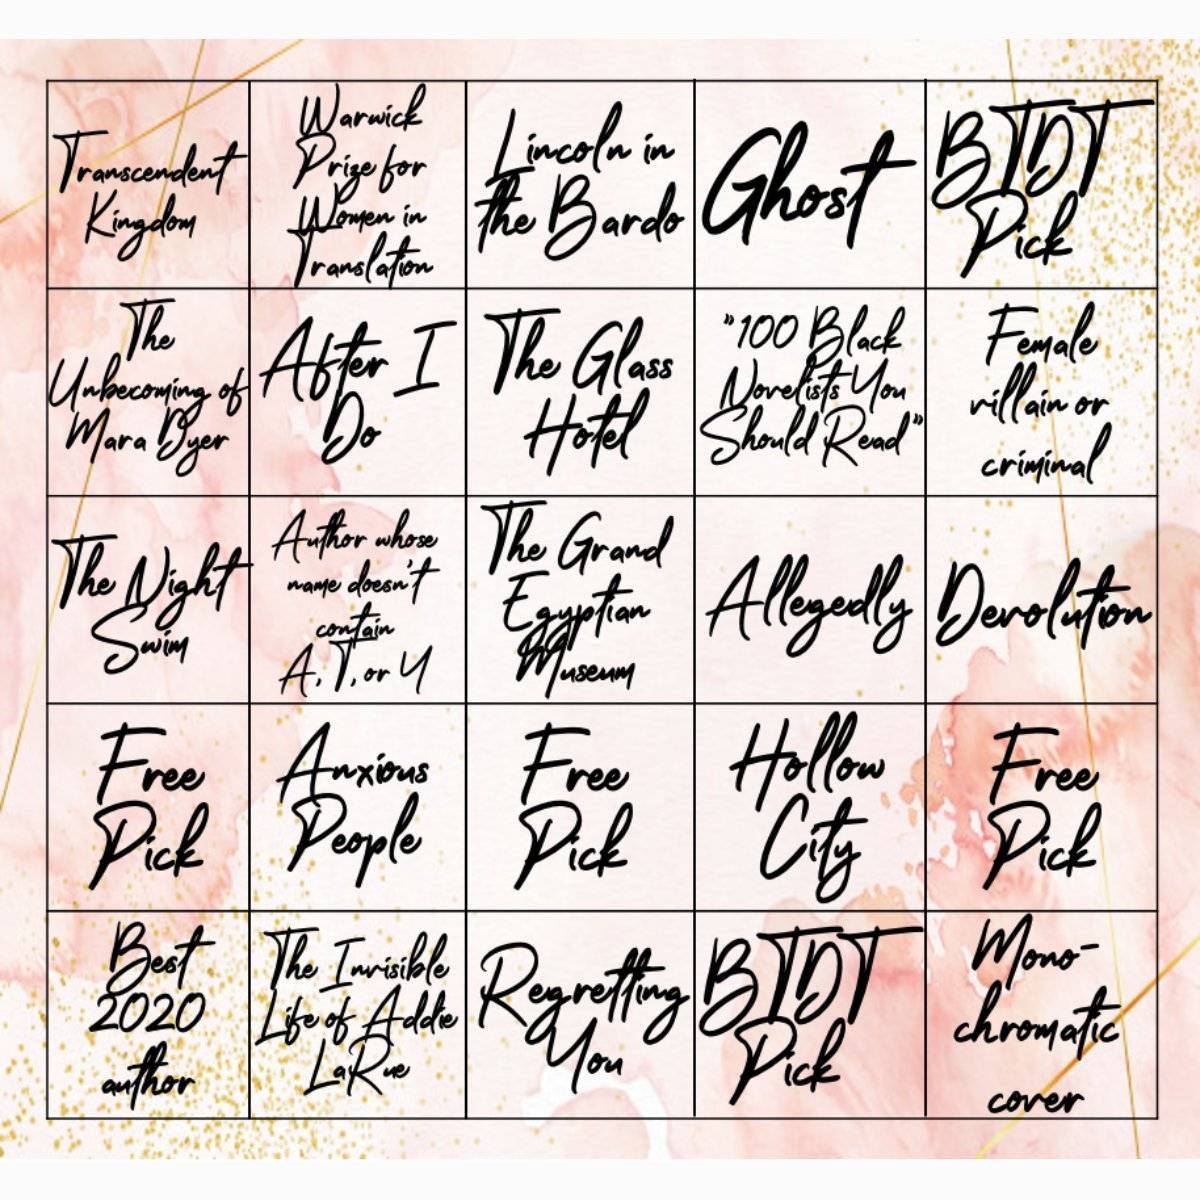 Transcendent
Kingdom
Warwick
Prize for
Women in
Translation
Lincoln in
the Bardo
Ghost
BTDT
Pick
The
Unbecoming of
Mara Dyer
After I
Do
The Glass
Hotel
"100 Black
Novelists You
Should Read"
Female
villain or
criminal
The Night
Swim
Author whose
name doesn't
contain
A, T, or Y
The Grand
Egyptian
Museum
Allegedly
Devolution
Free
Pick
Anxious
People
Free
Pick
Hollow
City
Free
Pick
Best
2020
author
The Invisible
Life of Addie
LaRue
Regretting
You
BTDT
Pick
Mono-
chromatic
cover